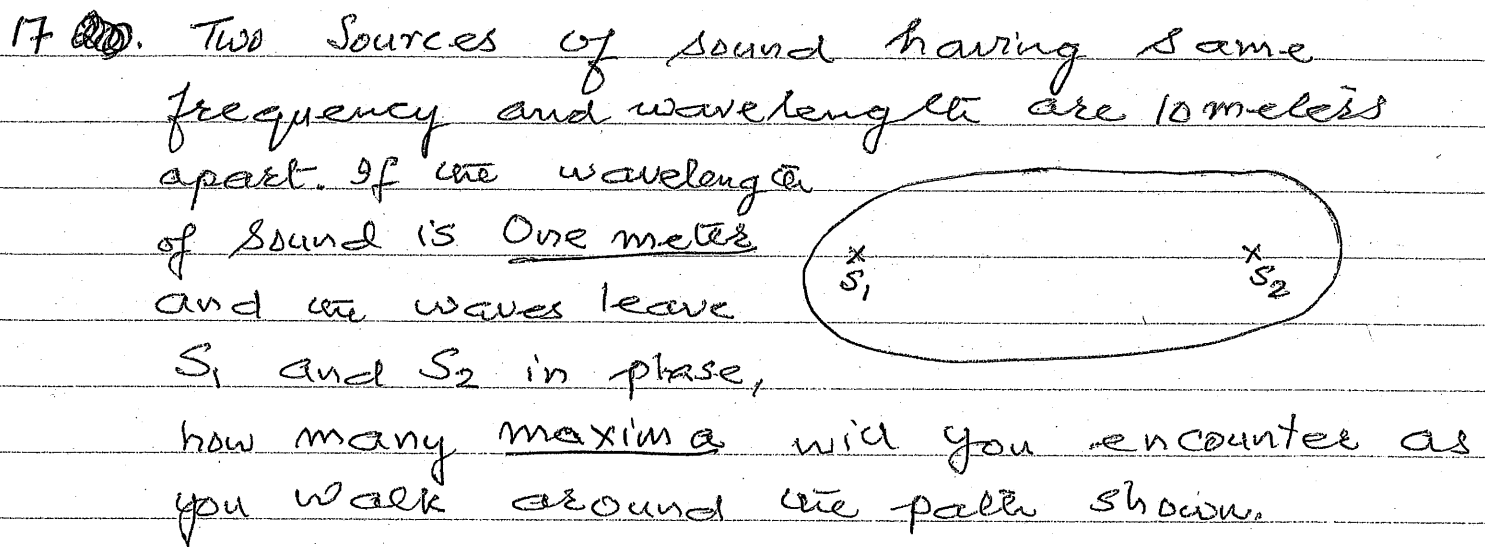 17. Two Sources of sound having same
frequency and wavelength are 10 meters
apart. If the wavelength
of Sound is One meter
and the waves leave
S1 and S2 in phase,
how many maxima will you encounter as
you walk around the path shown.
x
S1
x
S2